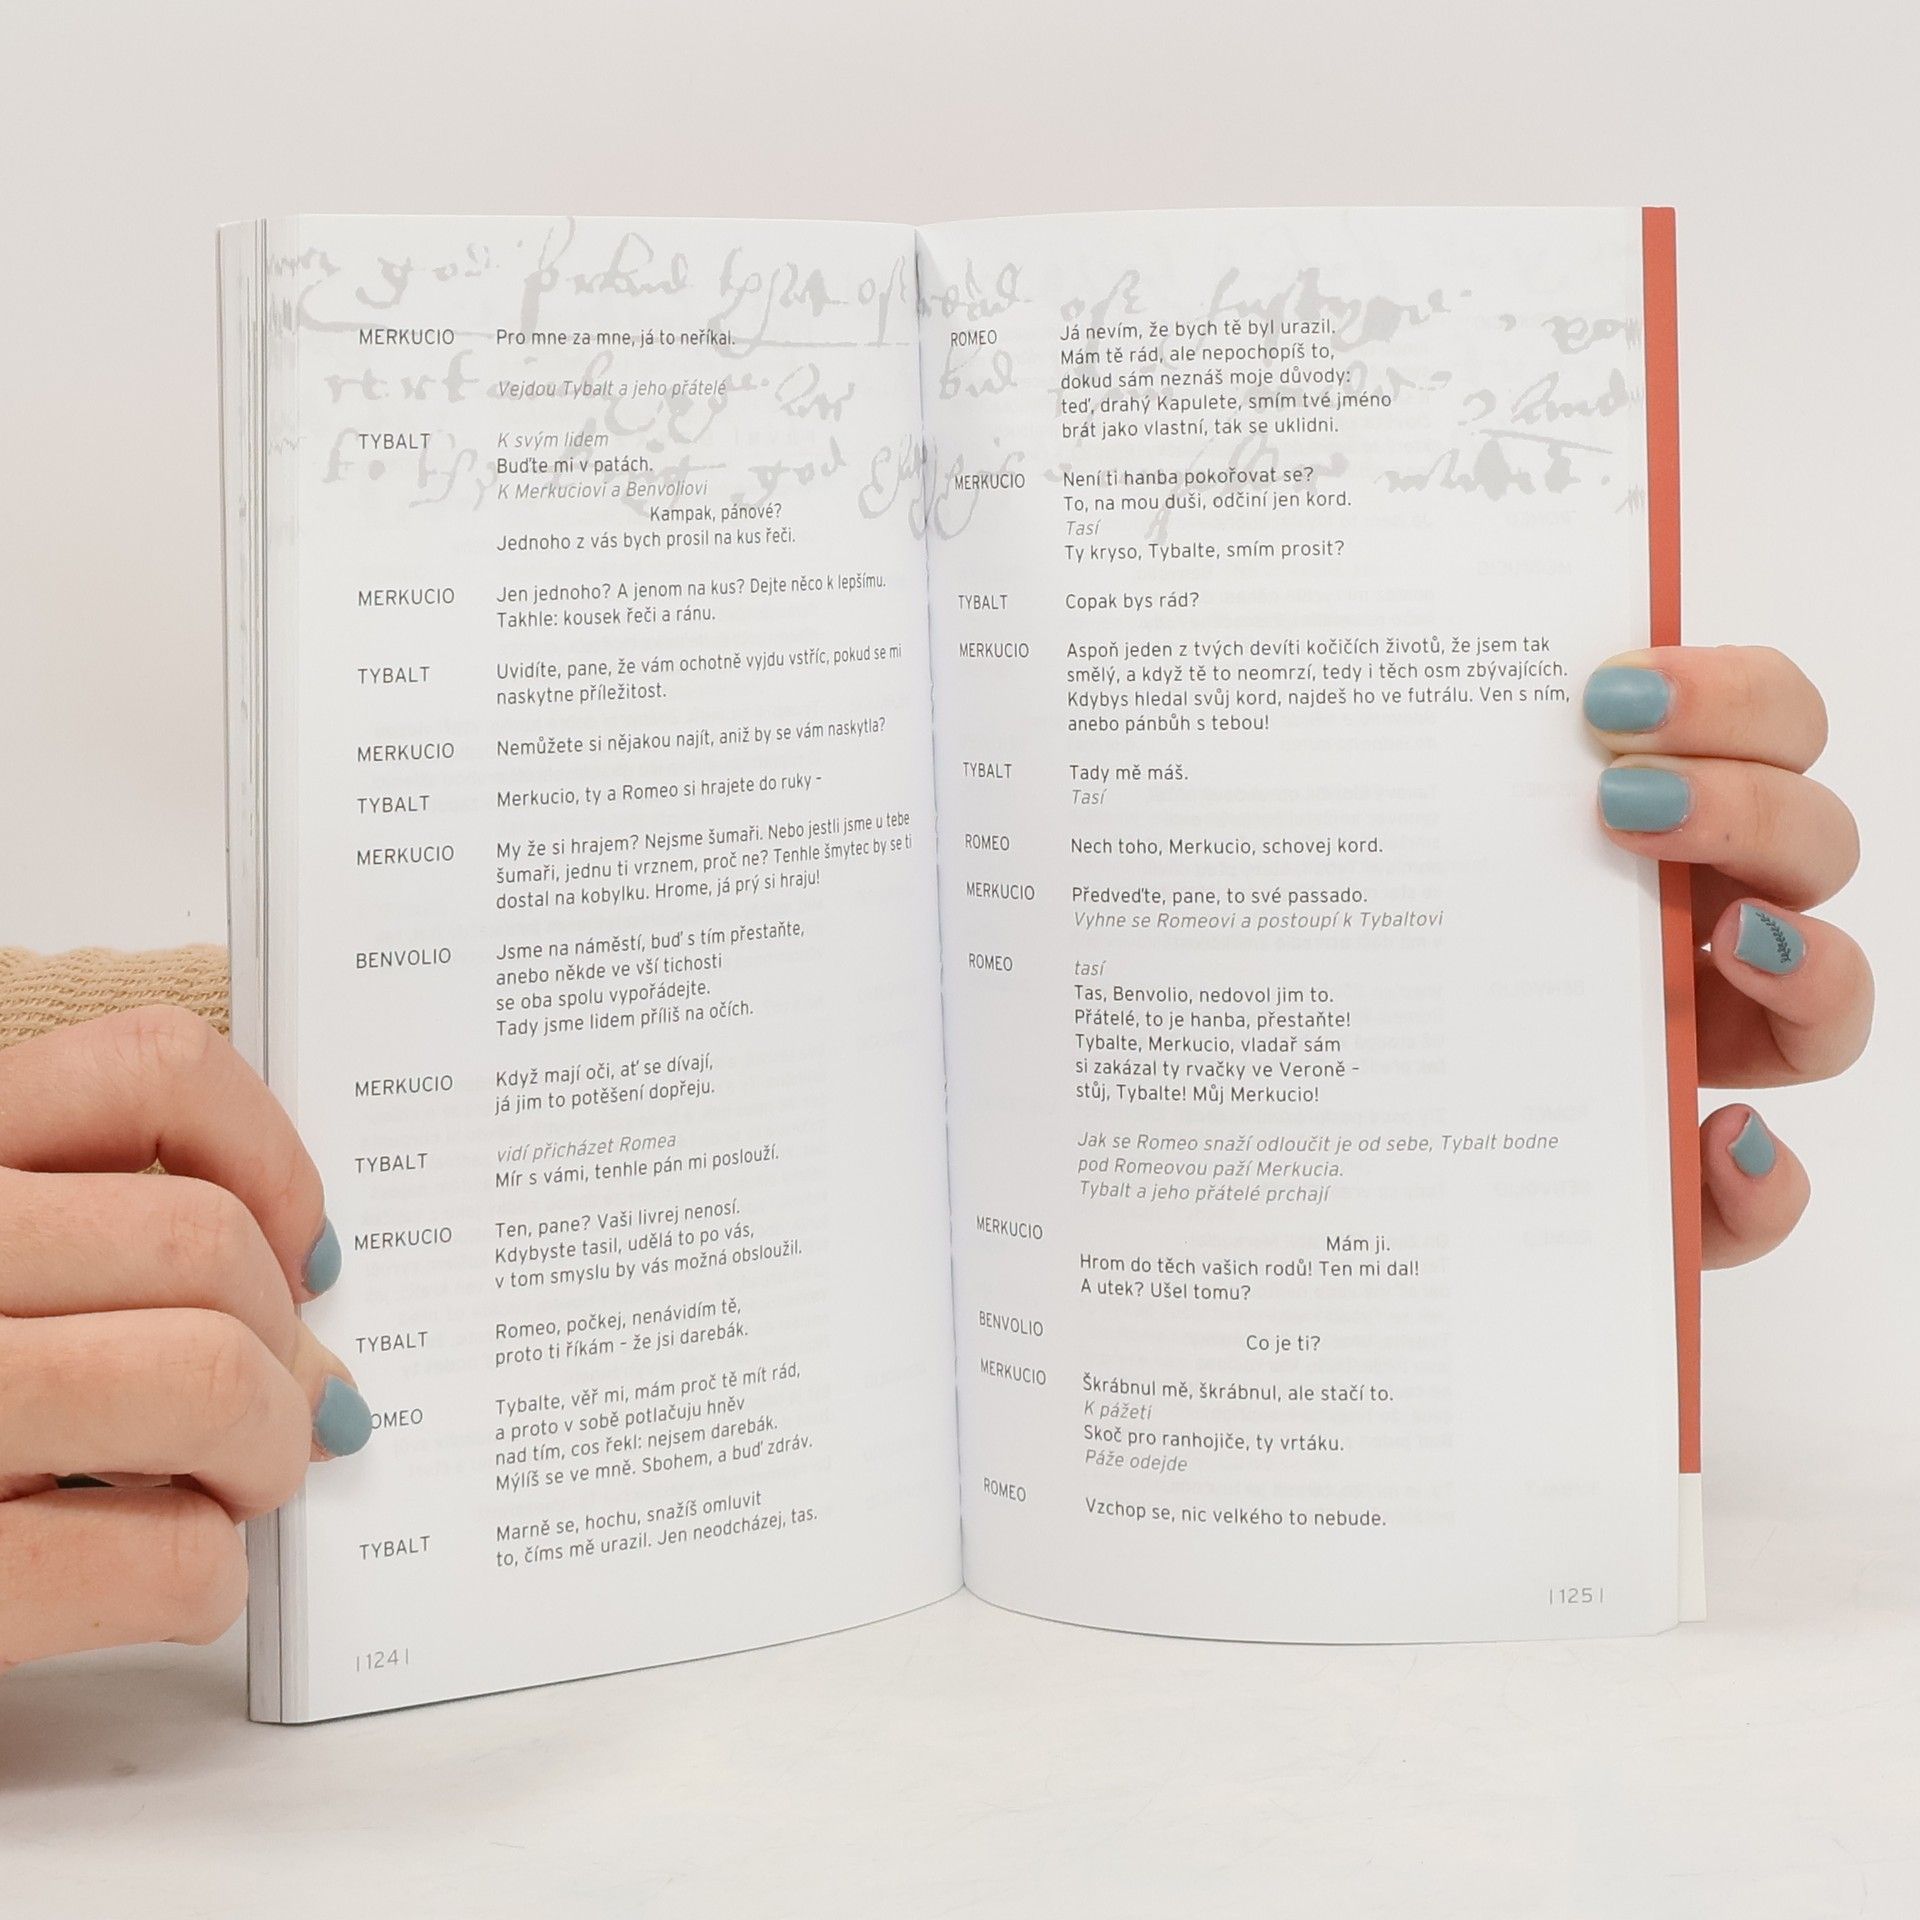 MERKUCIO Pro mne za mne, já to neříkal.
Vejdou Tybalt a jeho přátelé
TYBALT K svým lidem
Buďte mi v patách.
K Merkuciovi a Benvoliovi
Kampak, pánové?
Jednoho z vás bych prosil na kus řeči.
MERKUCIO Jen jednoho? A jenom na kus? Dejte něco k lepšímu.
Takhle: kousek řeči a ránu.
TYBALT Uvidíte, pane, že vám ochotně vyjdu vstříc, pokud se mi
naskytne příležitost.
MERKUCIO Nemůžete si nějakou najít, aniž by se vám naskytla?
TYBALT Merkucio, ty a Romeo si hrajete do ruky –
MERKUCIO My že si hrajem? Nejsme šumaři. Nebo jestli jsme u tebe
šumaři, jednu ti vrznem, proč ne? Tenhle šmytec by se ti
dostal na kobylku. Hrome, já prý si hraju!
BENVOLIO Jsme na náměstí, buď s tím přestaňte,
anebo někde ve vší tichosti
se oba spolu vypořádejte.
Tady jsme lidem příliš na očích.
MERKUCIO Když mají oči, ať se dívají,
já jim to potěšení dopřeju.
TYBALT vidí přicházet Romea
Mír s vámi, tenhle pán mi poslouží.
MERKUCIO Ten, pane? Vaši livrej nenosí.
Kdybyste tasil, udělá to po vás,
v tom smyslu by vás možná obsloužil.
TYBALT Romeo, počkej, nenávidím tě,
proto ti říkám – že jsi darebák.
OMEO Tybalte, věř mi, mám proč tě mít rád,
a proto v sobě potlačuju hněv
nad tím, cos řekl: nejsem darebák.
Mýlíš se ve mně. Sbohem, a buď zdráv.
TYBALT Marně se, hochu, snažíš omluvit
to, číms mě urazil. Jen neodcházej, tas.
| 124 |
ROMEO Já nevím, že bych tě byl urazil.
Mám tě rád, ale nepochopíš to,
dokud sám neznáš moje důvody:
teď, drahý Kapulete, smím tvé jméno
brát jako vlastní, tak se uklidni.
MERKUCIO Není ti hanba pokořovat se?
To, na mou duši, odčiní jen kord.
Tasí
Ty kryso, Tybalte, smím prosit?
TYBALT Copak bys rád?
MERKUCIO Aspoň jeden z tvých devíti kočičích životů, že jsem tak
smělý, a když tě to neomrzí, tedy i těch osm zbývajících.
Kdybys hledal svůj kord, najdeš ho ve futrálu. Ven s ním,
anebo pánbůh s tebou!
TYBALT Tady mě máš.
Tasí
ROMEO Nech toho, Merkucio, schovej kord.
MERKUCIO Předveďte, pane, to své passado.
Vyhne se Romeovi a postoupí k Tybaltovi
ROMEO tasí
Tas, Benvolio, nedovol jim to.
Přátelé, to je hanba, přestaňte!
Tybalte, Merkucio, vladař sám
si zakázal ty rvačky ve Veroně –
stůj, Tybalte! Můj Merkucio!
Jak se Romeo snaží odloučit je od sebe, Tybalt bodne
pod Romeovou paží Merkucia.
Tybalt a jeho přátelé prchají
MERKUCIO Mám ji.
Hrom do těch vašich rodů! Ten mi dal!
A utek? Ušel tomu?
BENVOLIO Co je ti?
MERKUCIO Škrábnul mě, škrábnul, ale stačí to.
K pážeti
Skoč pro ranhojiče, ty vrtáku.
Páže odejde
ROMEO Vzchop se, nic velkého to nebude.
| 125 |